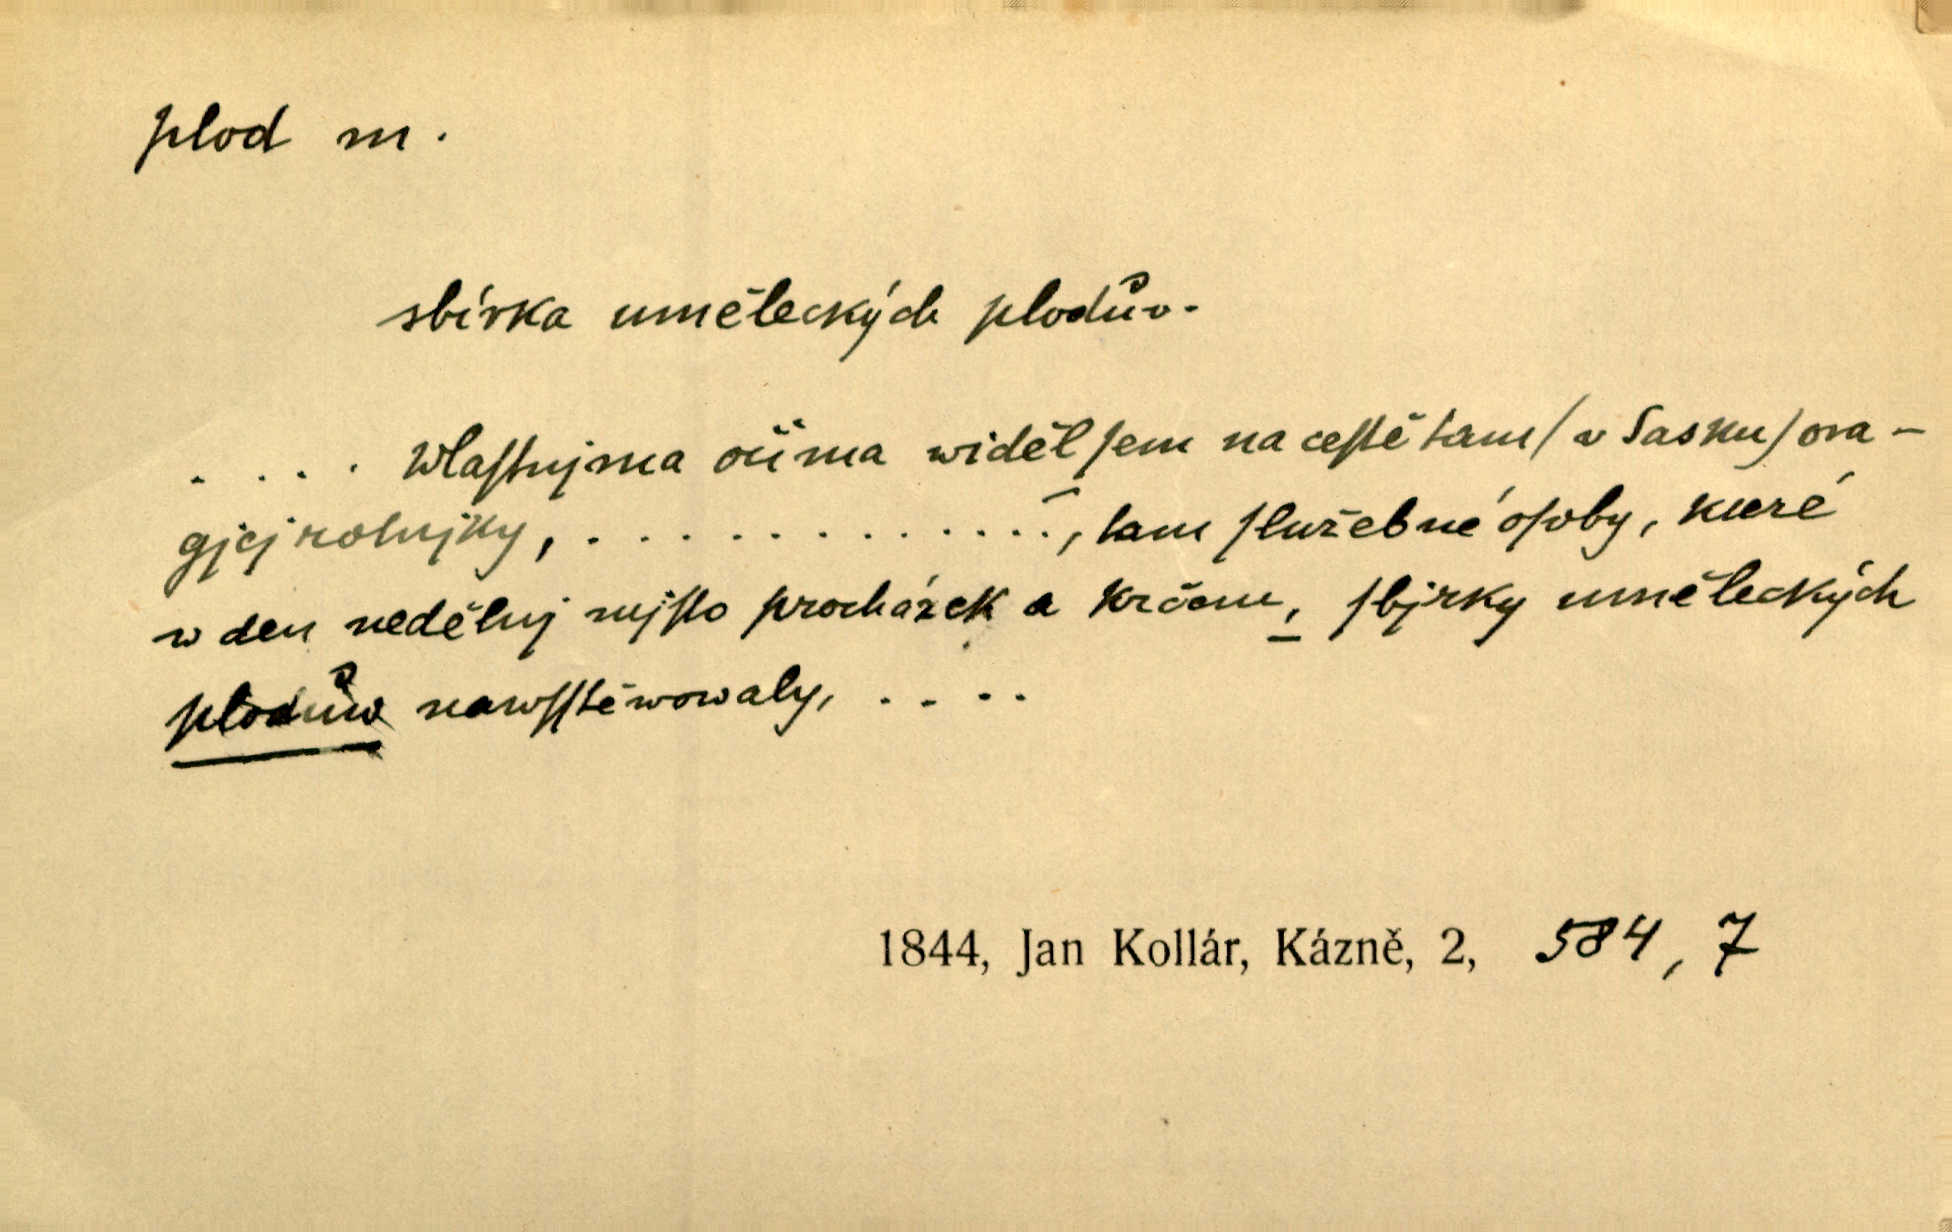 plod m.
sbírka uměleckých plodův.
. . . . Wlaſtnjma očima widěl ſem na ceſtě tam / v Sasku / ora-
gjcj rolnjky, . . . . . . . . . . . . . , tam ſlužebné oſoby, které
w den nedělnj mjſto procházek a krčem, ſbjrky uměleckých
plodůw nawſſtěwowaly, . . . .
1844, Jan Kollár, Kázně, 2, 584, 7